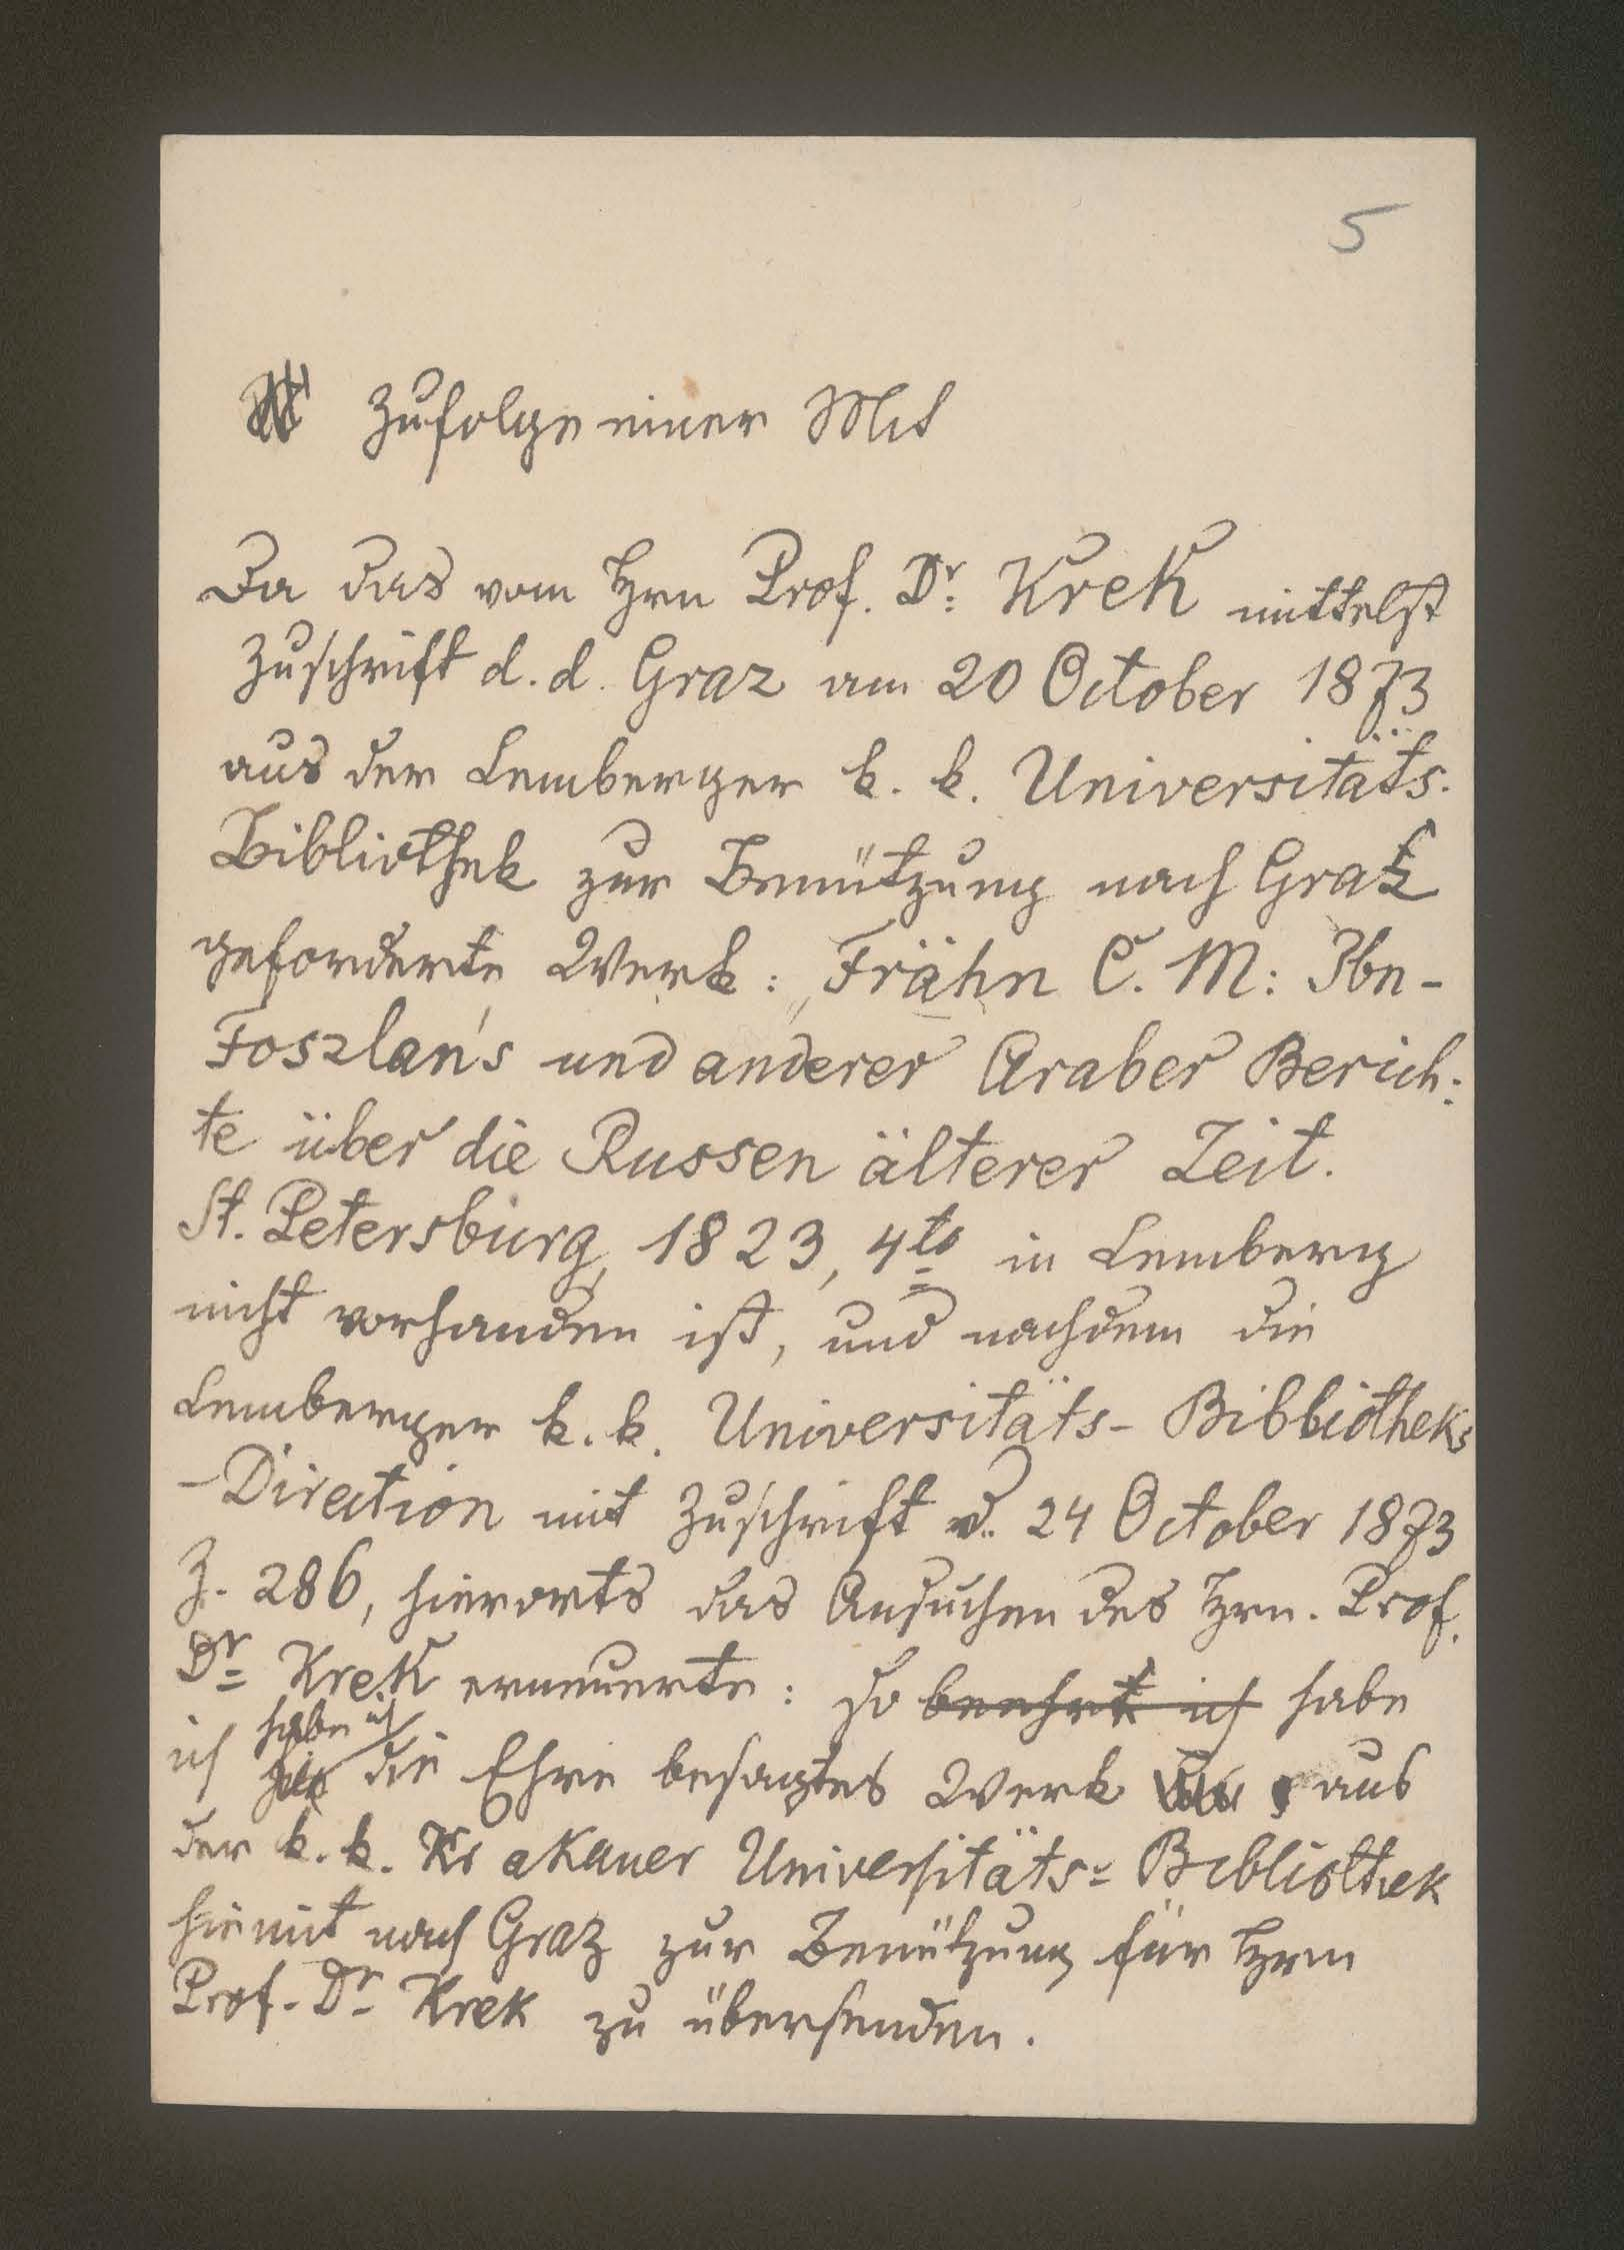 5
Zufolge einer Mit
Da das vom Hrn Prof. Dr: Krek mittelst
Zuschrift d. d. Graz am 20 October 1873
aus der Lemberger k. k. Universitäts-
Bibliothek zur Benützung nach Graz
geforderte Werk: Frähn C. M: Ibn-
Foszlan's und anderer Araber Berich:
te über die Russen älterer Zeit.
St. Petersburg, 1823, 4to in Lemberg
nicht vorhanden ist, und nachdem die
Lemberger k. k. Universitäts-Bibliotheks
-Direction mit Zuschrift v. 24 October 1873
Z. 286, hierorts das Ansuchen des Hrn. Prof.
Dr Krek erneuerte: so beehrt ich habe
habe ich
ich die Ehre besagtes Werk aus
der k. k. Krakauer Universitäts-Bibliothek
hiemit nach Graz zur Benützung für Hrn
Prof. Dr Krek zu übersenden.